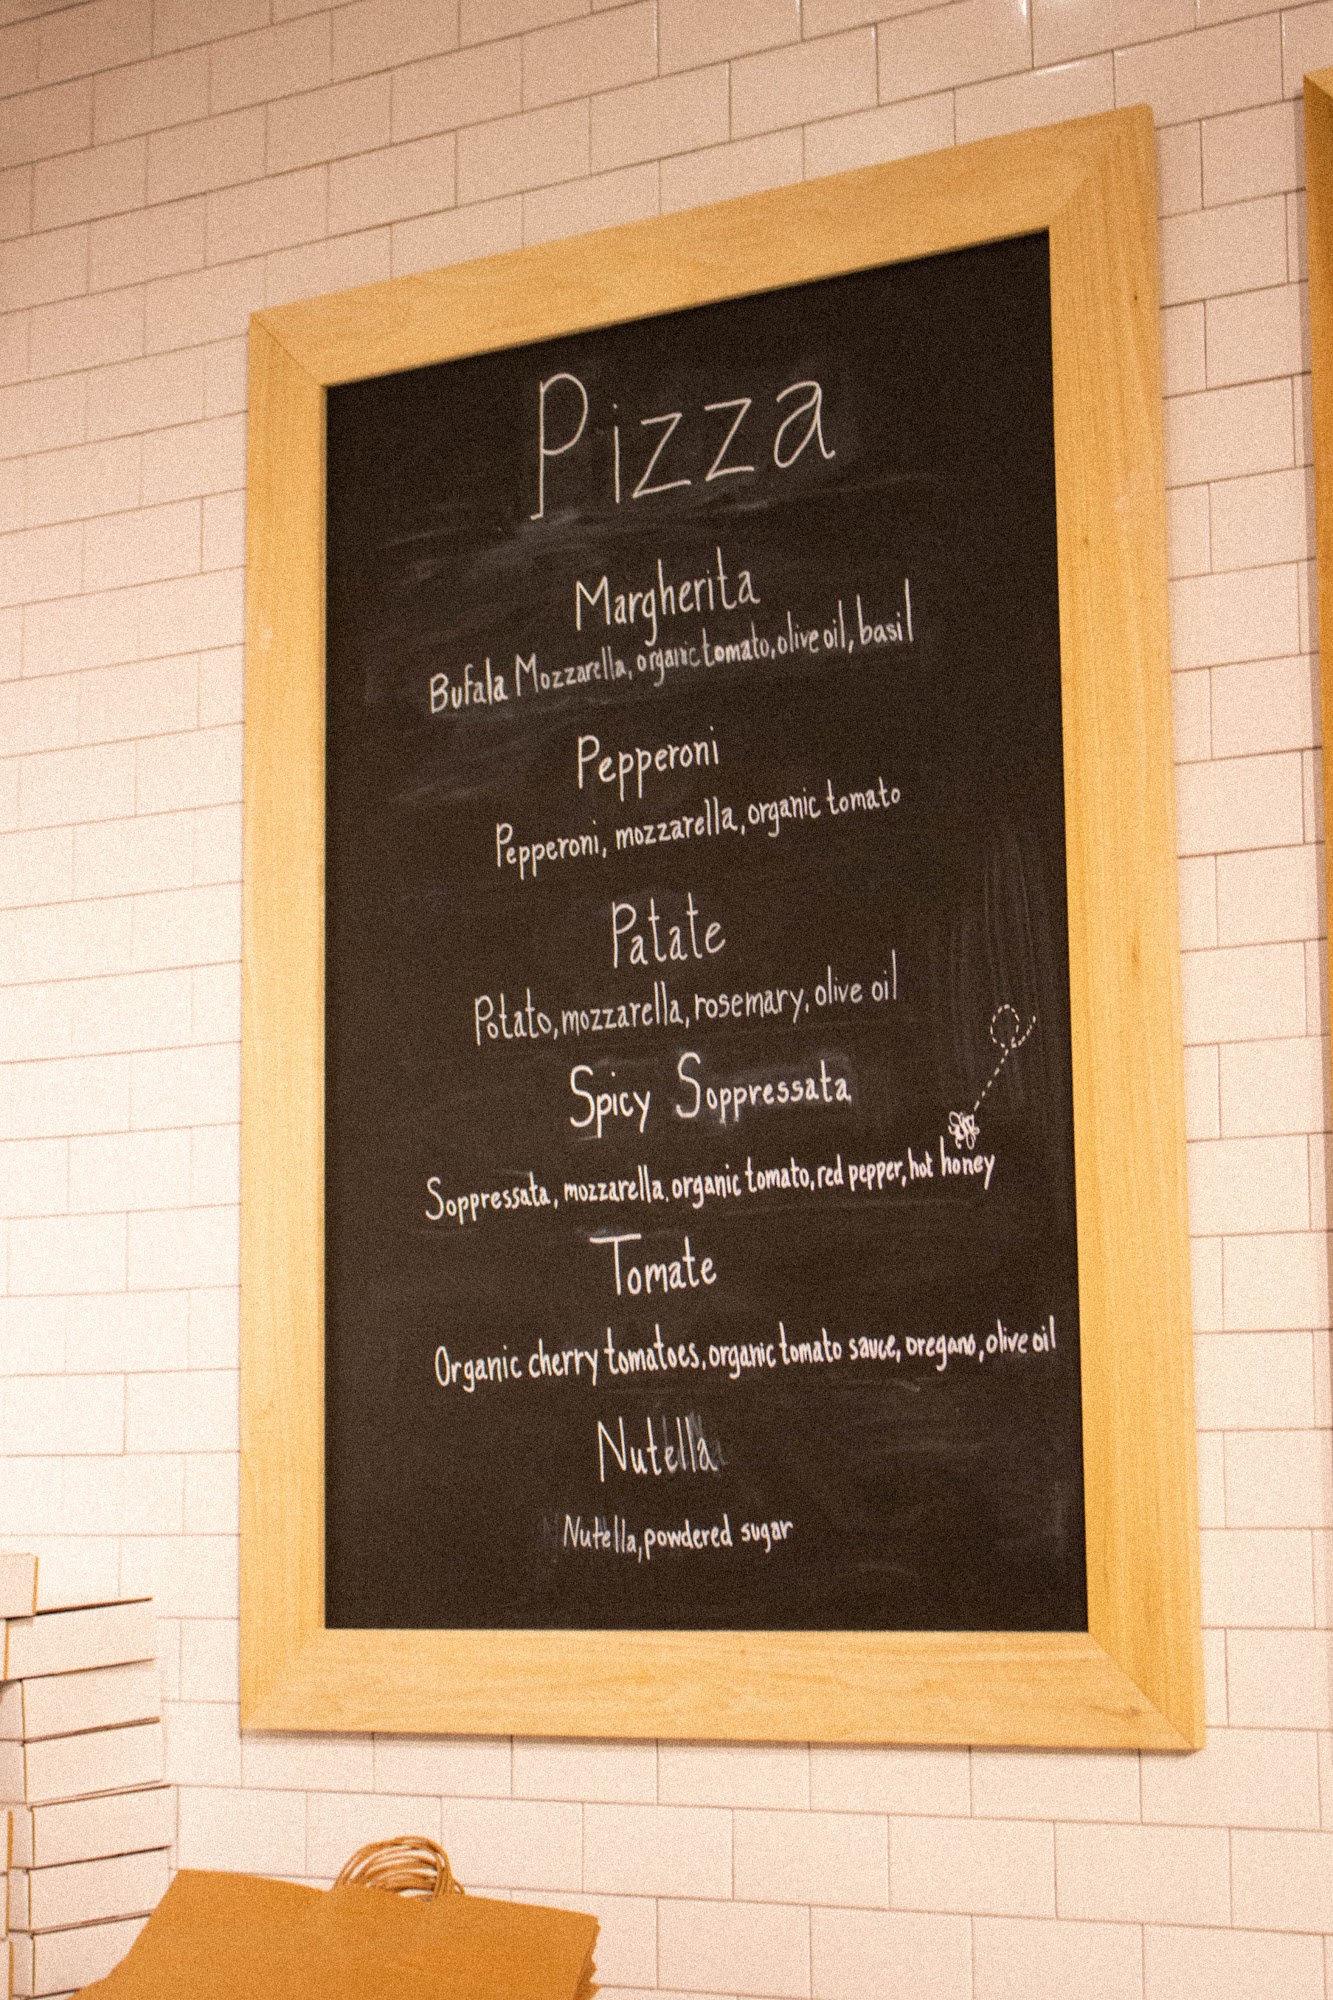 Pizza
Margherita
Bufala Mozzarella, organic tomato, olive oil, basil
Pepperoni
Pepperoni, mozzarella, organic tomato
Patate
Potato, mozzarella, rosemary, olive oil
Spicy Soppressata
Soppressata, mozzarella, organic tomato, red pepper, hot honey
Tomate
Organic cherry tomatoes, organic tomato sauce, oregano, olive oil
Nutella
Nutella, powdered sugar